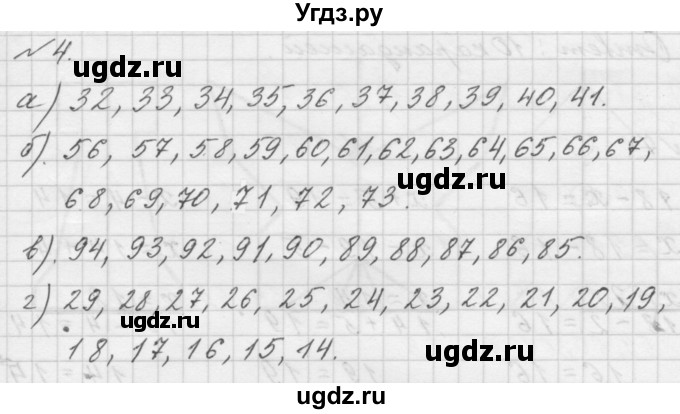 Угдз.ру
№ 4.
ugdz.ru
а) 32, 33, 34, 35, 36, 37, 38, 39, 40, 41.
ugdz.ru
б). 56, 57, 58, 59, 60, 61, 62, 63, 64, 65, 66, 67,
ugdz.ru
68, 69, 70, 71, 72, 73.
в). 94, 93, 92, 91, 90, 89, 88, 87, 86, 85.
г) 29, 28, 27, 26, 25, 24, 23, 22, 21, 20, 19,
ugdz.ru
18, 17, 16, 15, 14.
ugdz.ru
Угдз.ру